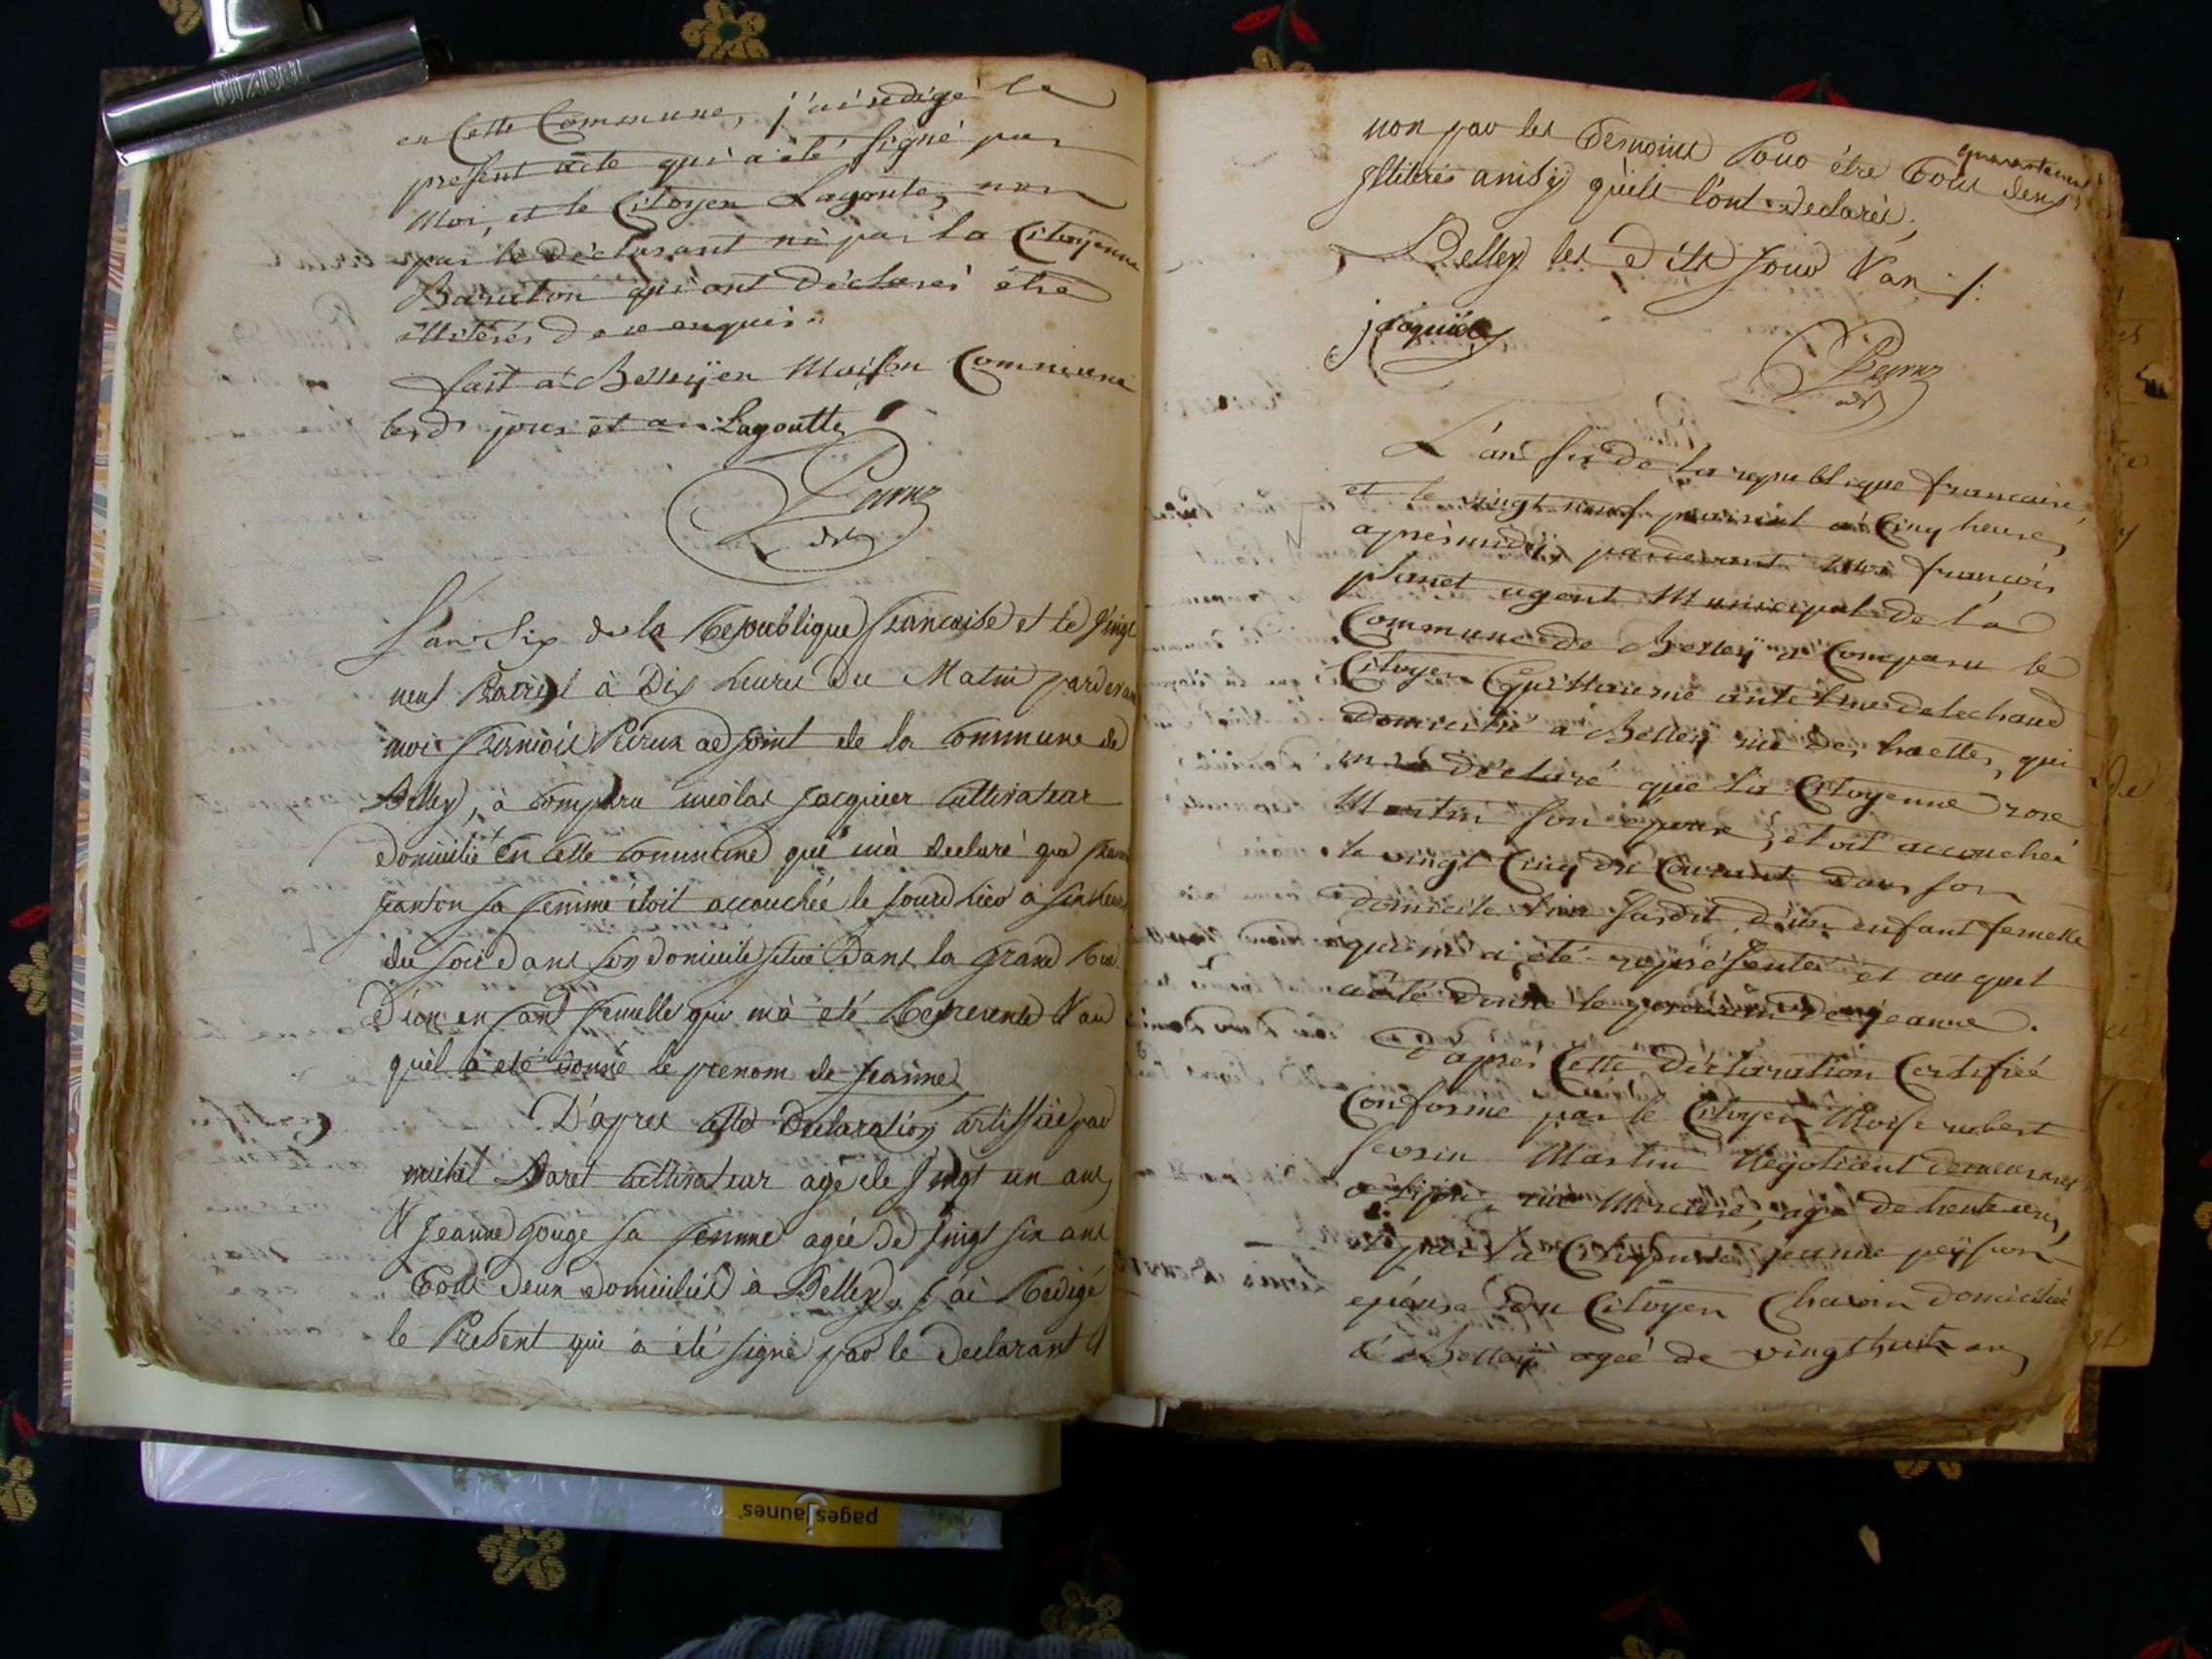 en Cette Commune, j'ai redigé le
present acte qui a été signé par
Moi, et le Citoyen Lagoutte, non
par le déclarant ni par la Citoyenne
Baruton qui ont déclarés être
illitérés de ce enquis.
fait à Belleÿ en Maison Commune
lesd. jours et an Lagoutte
L'an Six de la Republique francaise et le Vingt
neuf Prairial à Dix heures Du Matin pardevant
moi adjoint de la Commune de
Belley, à Comparu nicolas Jacquier Cultivateur
Domicilié En Cette Commune qui m'à declaré que
Janton sa femme étoit accouchée le jourd hier à six heures
du soir dans son domicile situé Dans la grand Rue
D'un enfant femelle qui m'à eté Representé & au
quel à eté donné le prenom de Jeanne
D'apres cette Declaration Certiffiée par
michel Baret Cultivateur agé de Vingt un ans
& Jeanne gouge sa femme agée De Vingt six ans
Tous Deux Domiciliés à Belley, j'ai Redigé
le Present qui à été signé par le Declarant &
non par les Temoins Pour être Tous deux
Illiterés ainsy qu'ils l'ont Declarés,
Belley les Dits Jour & an /.
jacquier
L'an six de la republique francaise,
et le vingt neuf prairial à Cinq heures
aprés midÿ, pardevant moi françois
planet agent Municipal de la
Commune de Belleÿ a Comparu le
Citoyen Guillaume antelme delechaud
domicilié à Belley rue des, qui
m'a déclaré que la Citoyenne rose
Martin son épouse, étoit accouchée
le vingt Cinq du Courant dans son
domicile d'un enfant femelle
qui m'a été représenté et auquel
a été donné le prenom de jeanne.
D'aprés Cette Déclaration Certifiée
Conforme par le Citoyen Moise robert
Martin Négotiant demeurant
à Lijon, rue Merciere, agé de trente ans,
et par la Citoyenne jeanne
epouse du Citoyen Chavin domiciliée
à Belleÿ ageé de vingt huit ans
pagesjaunes